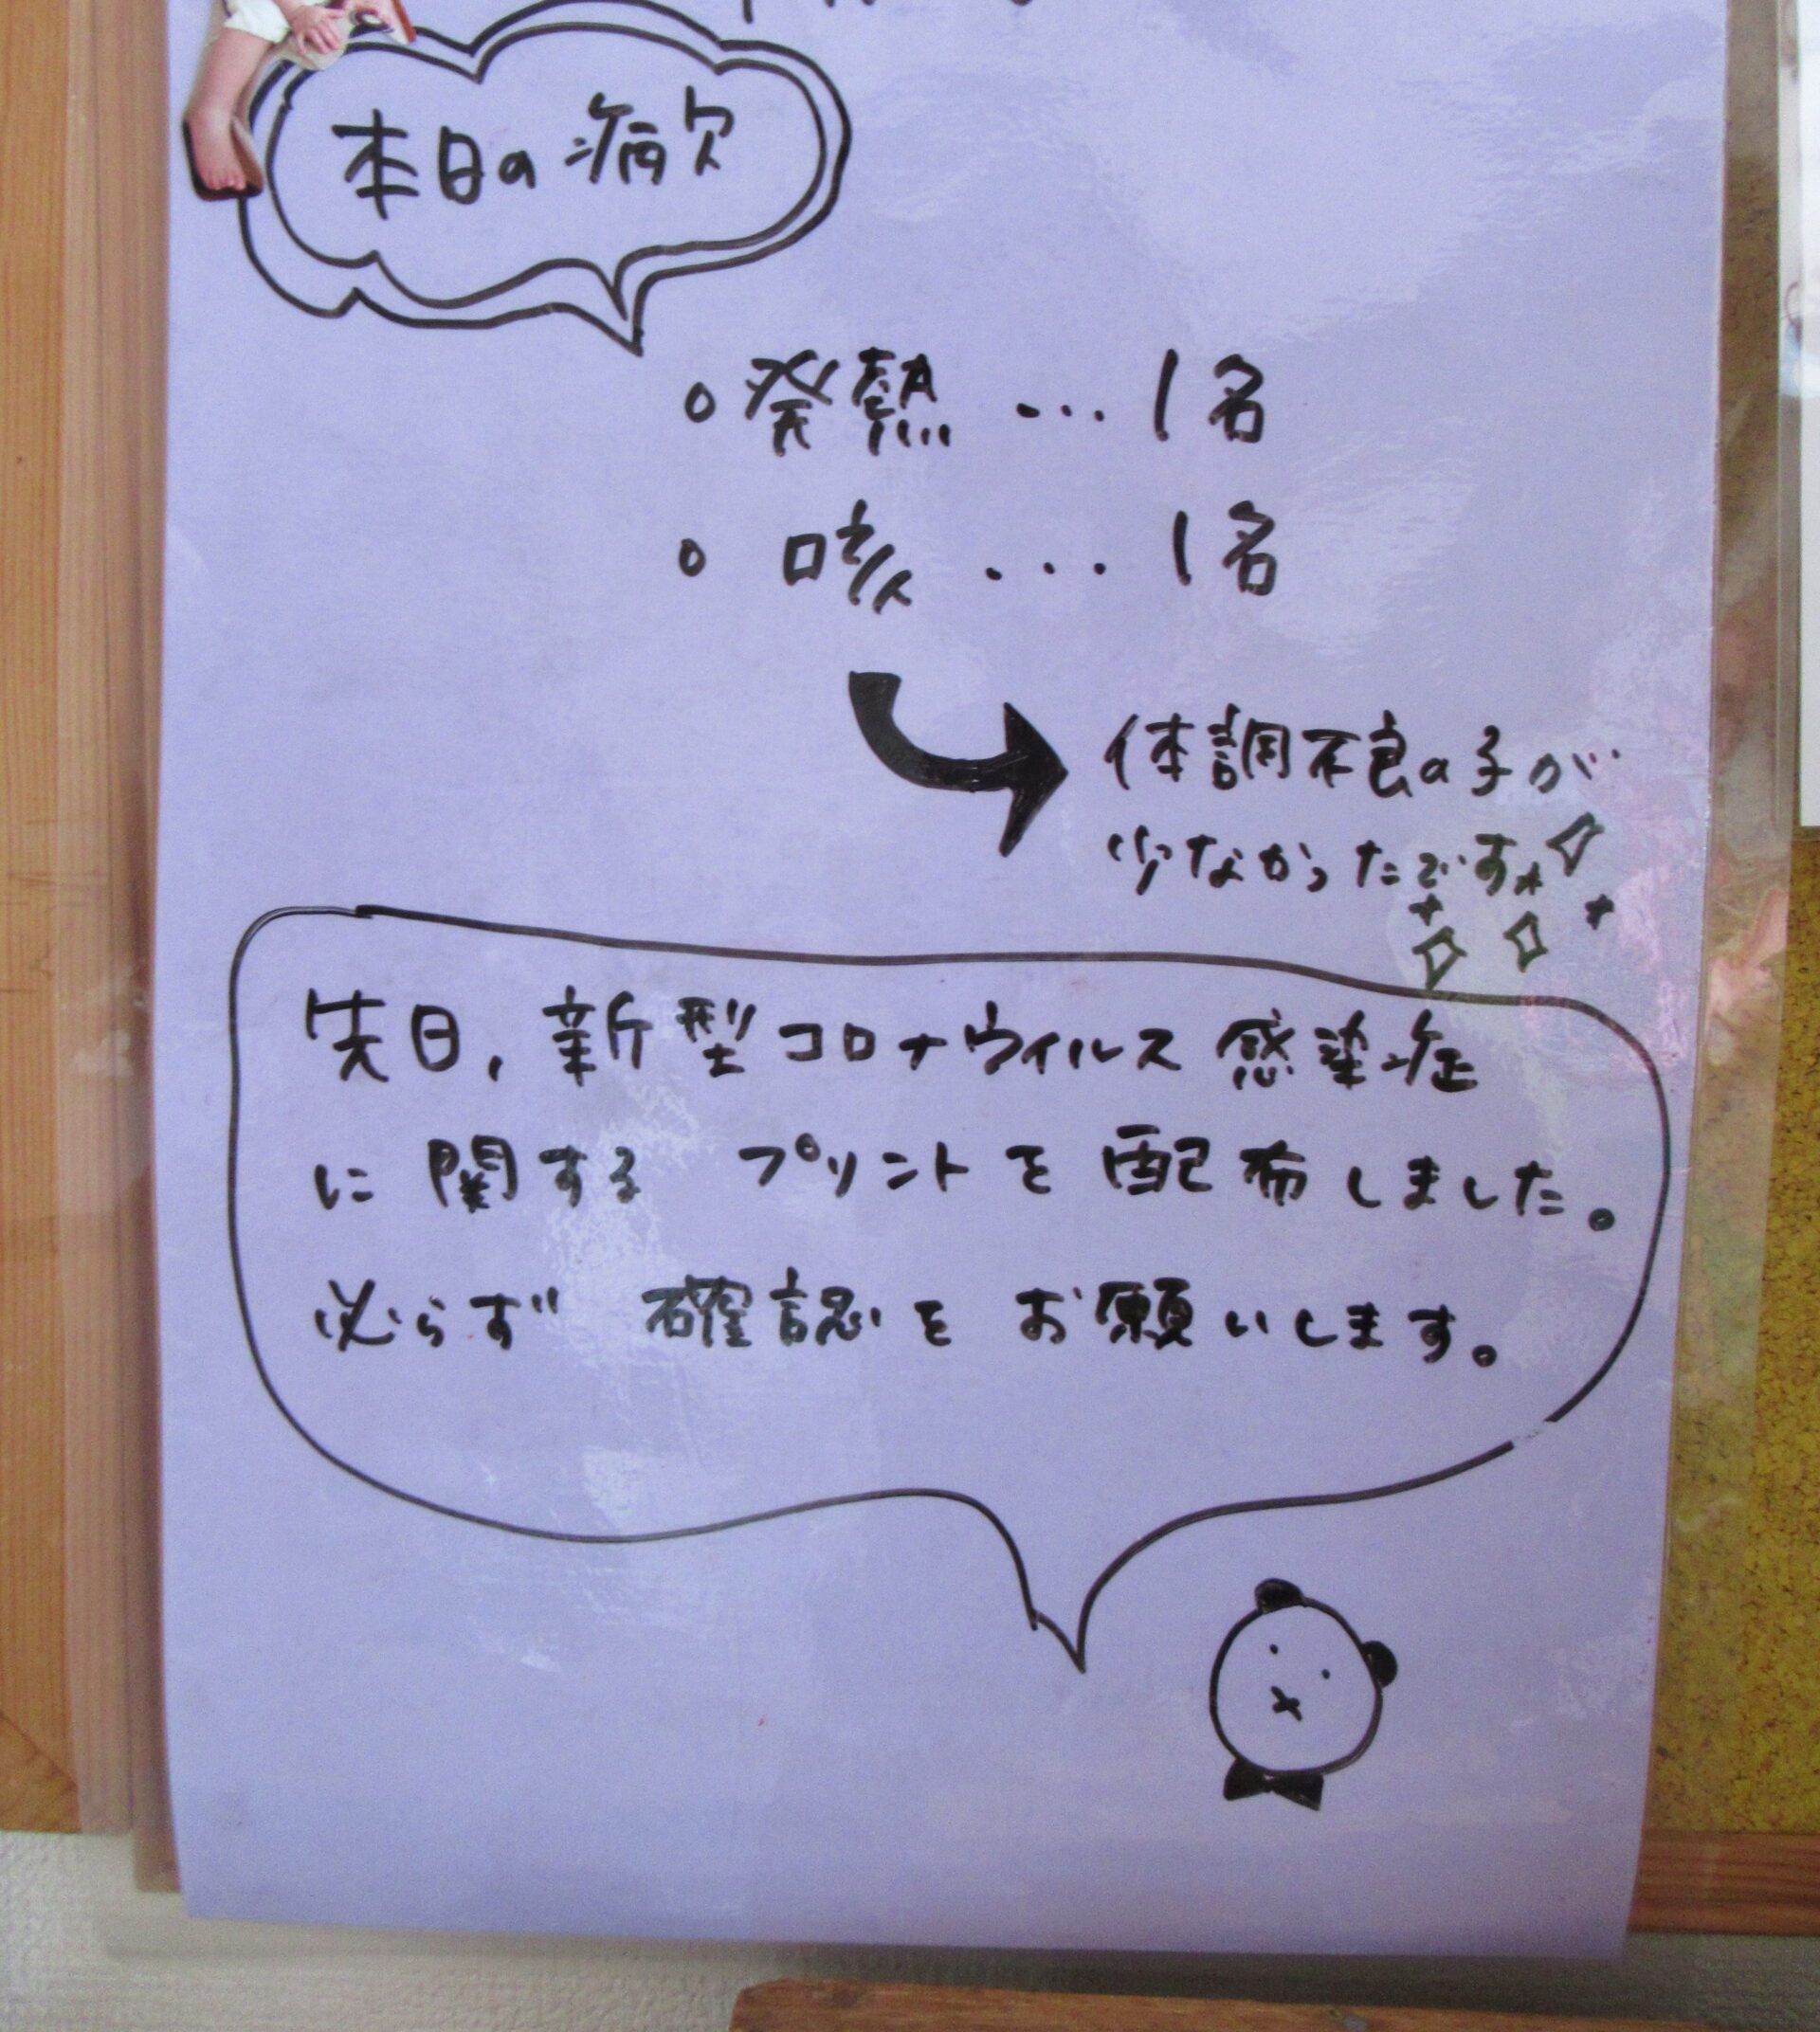 本日の病欠
○発熱 ... 1名
○咳 ... 1名
体調不良の子が
少なかったです
先日、新型コロナウィルス感染症
に関する プリントを配布しました。
必らず 確認をお願いします。